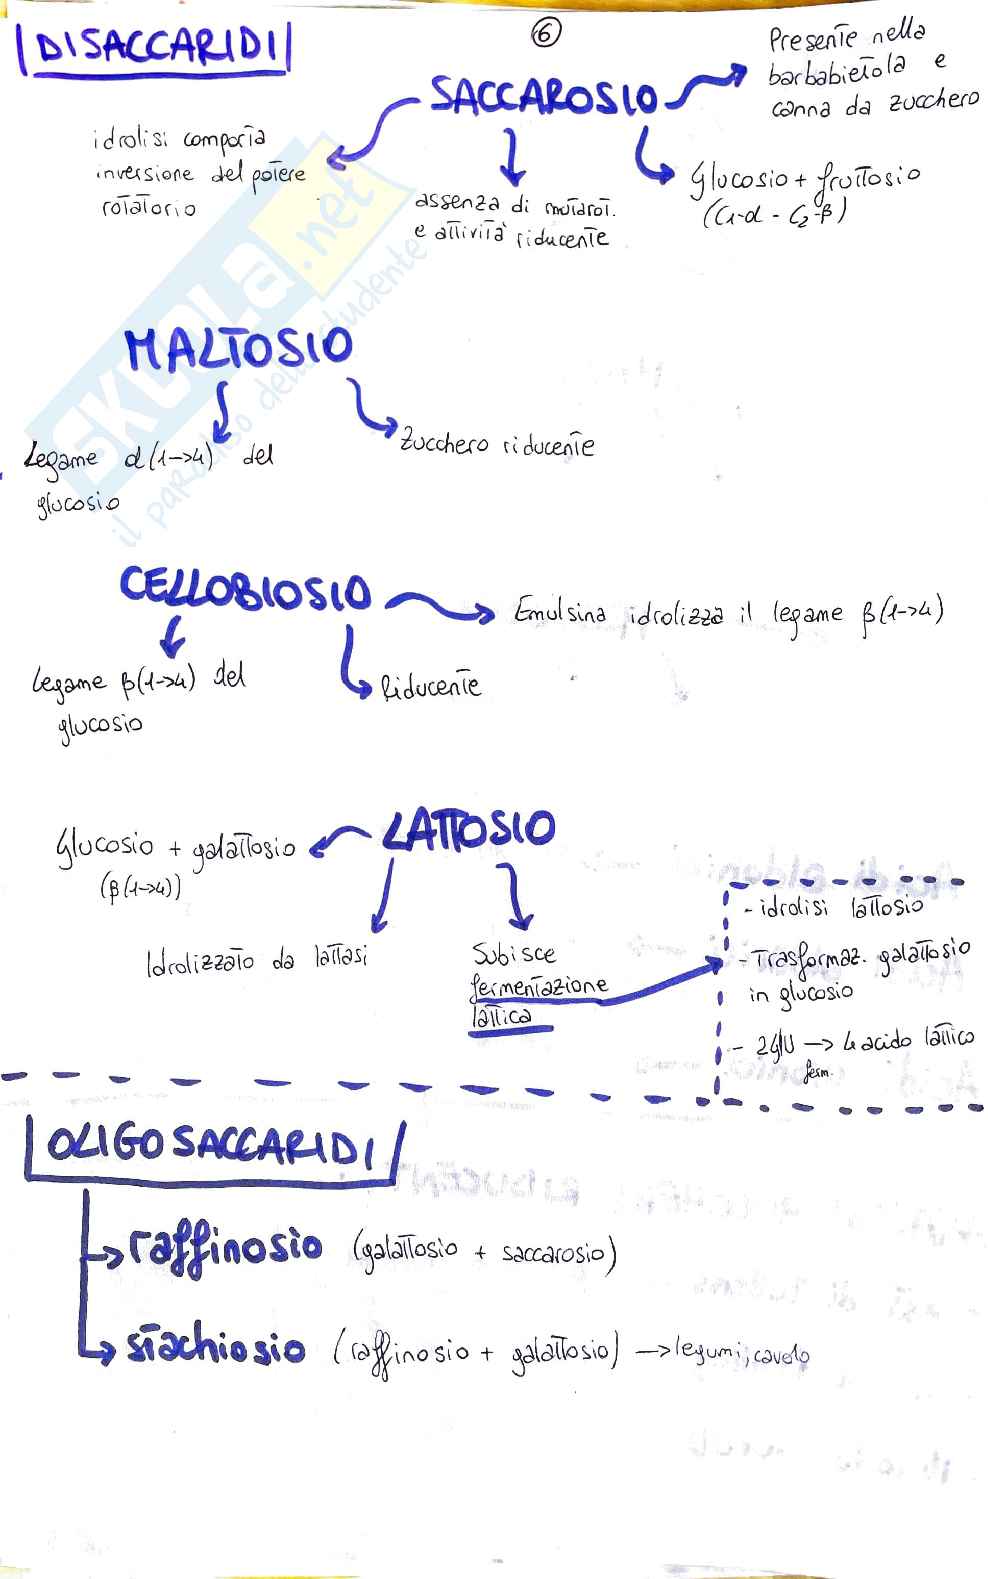 DISACCARIDI
6
SACCAROSIO
Presente nella
barbabietola e
canna da zucchero
idrolisi comporta
inversione del potere
rotatorio
assenza di mutarot.
e attività riducente
Glucosio + fruttosio
(C1-α - C2-β)
MALTOSIO
Legame α(1->4) del
glucosio
Zucchero riducente
CELLOBIOSIO
Emulsina idrolizza il legame β(1->4)
Legame β(1->4) del
glucosio
Riducente
LATTOSIO
Glucosio + galattosio
(β(1->4))
Idrolizzato da lattasi
Subisce
fermentazione
lattica
- idrolisi lattosio
- Trasformaz. galattosio
in glucosio
- 2glu -> 4 acido lattico
ferm.
OLIGOSACCARIDI
raffinosio (galattosio + saccarosio)
stachiosio (raffinosio + galattosio) -> legumi, cavolo
SKUOLA.net
il paradiso dello studente